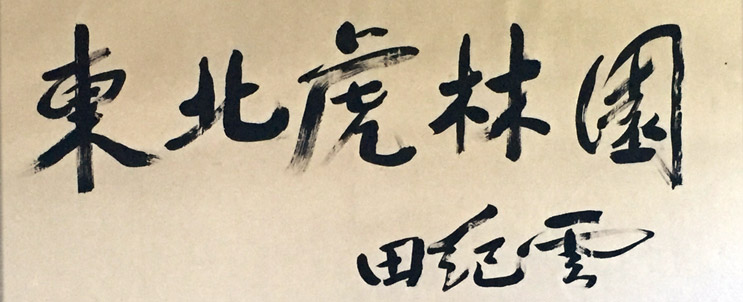 東北虎林園
田紀雲